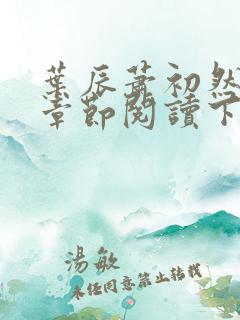 葉辰蕭初然
章節閱讀下
湯敏
未经同意禁止转载